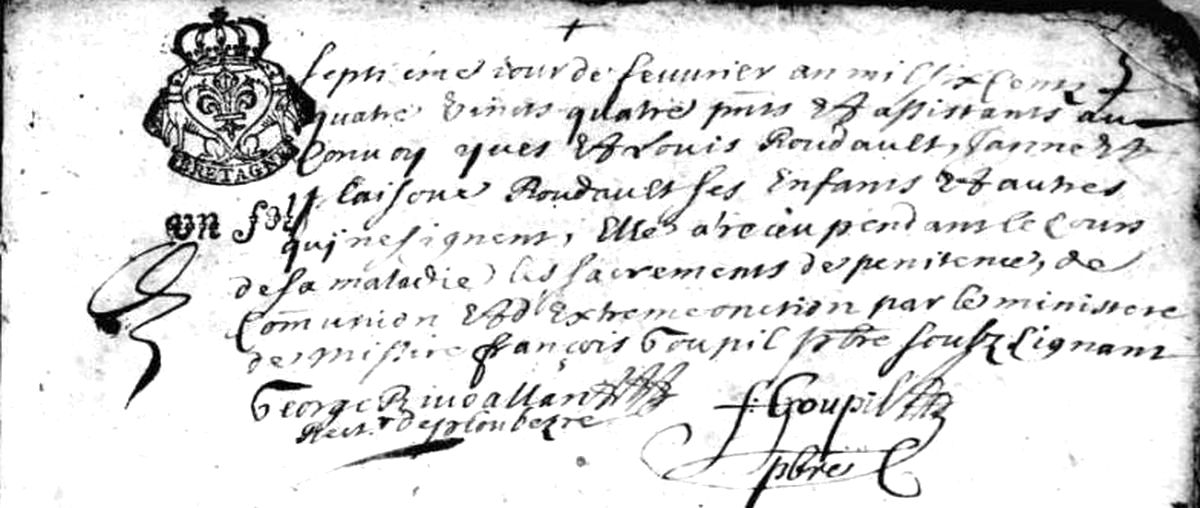 septieme iour de feuurier an mil six centz
quatre vincts quatre pnts et assistants au
Conuoy yues et Louis Roudault, Janne et
BRETAGNE
laisoue Roudault ses Enfants et autres
un
qui ne signent, Elle a receu pendant le Cours
de sa maladie les sacrements de penitence, de
Communion et d Extremeonction par le ministere
de Missire françois Goupil pbre soubz signant
George Riuoallan f: Goupil
Rect.r de ploubezre
pbre